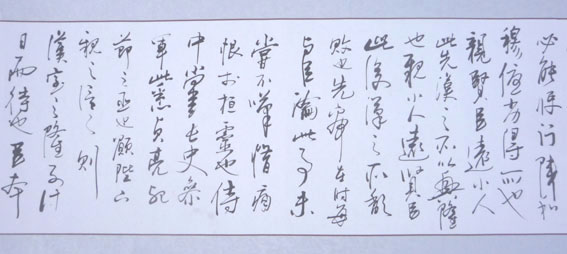 必能使行陣和
穆優劣得所也
親賢臣遠小人
此先漢之所以興隆
也親小人遠賢臣
此後漢之所傾
頹也先帝在時每
與臣論此事未
嘗不嘆惜痛
恨於桓靈也侍
中尚書長史參
軍此悉貞亮死
節之臣也願陛下
親之信之則
漢室之隆可計
日而待也臣本